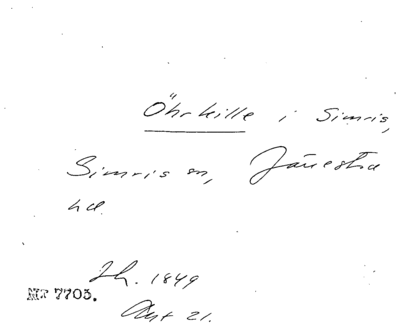 Öhrkille i Simris,
Simris sn, Järrestad
hd.
Lh. 1849
Akt 21.
MT 7703.